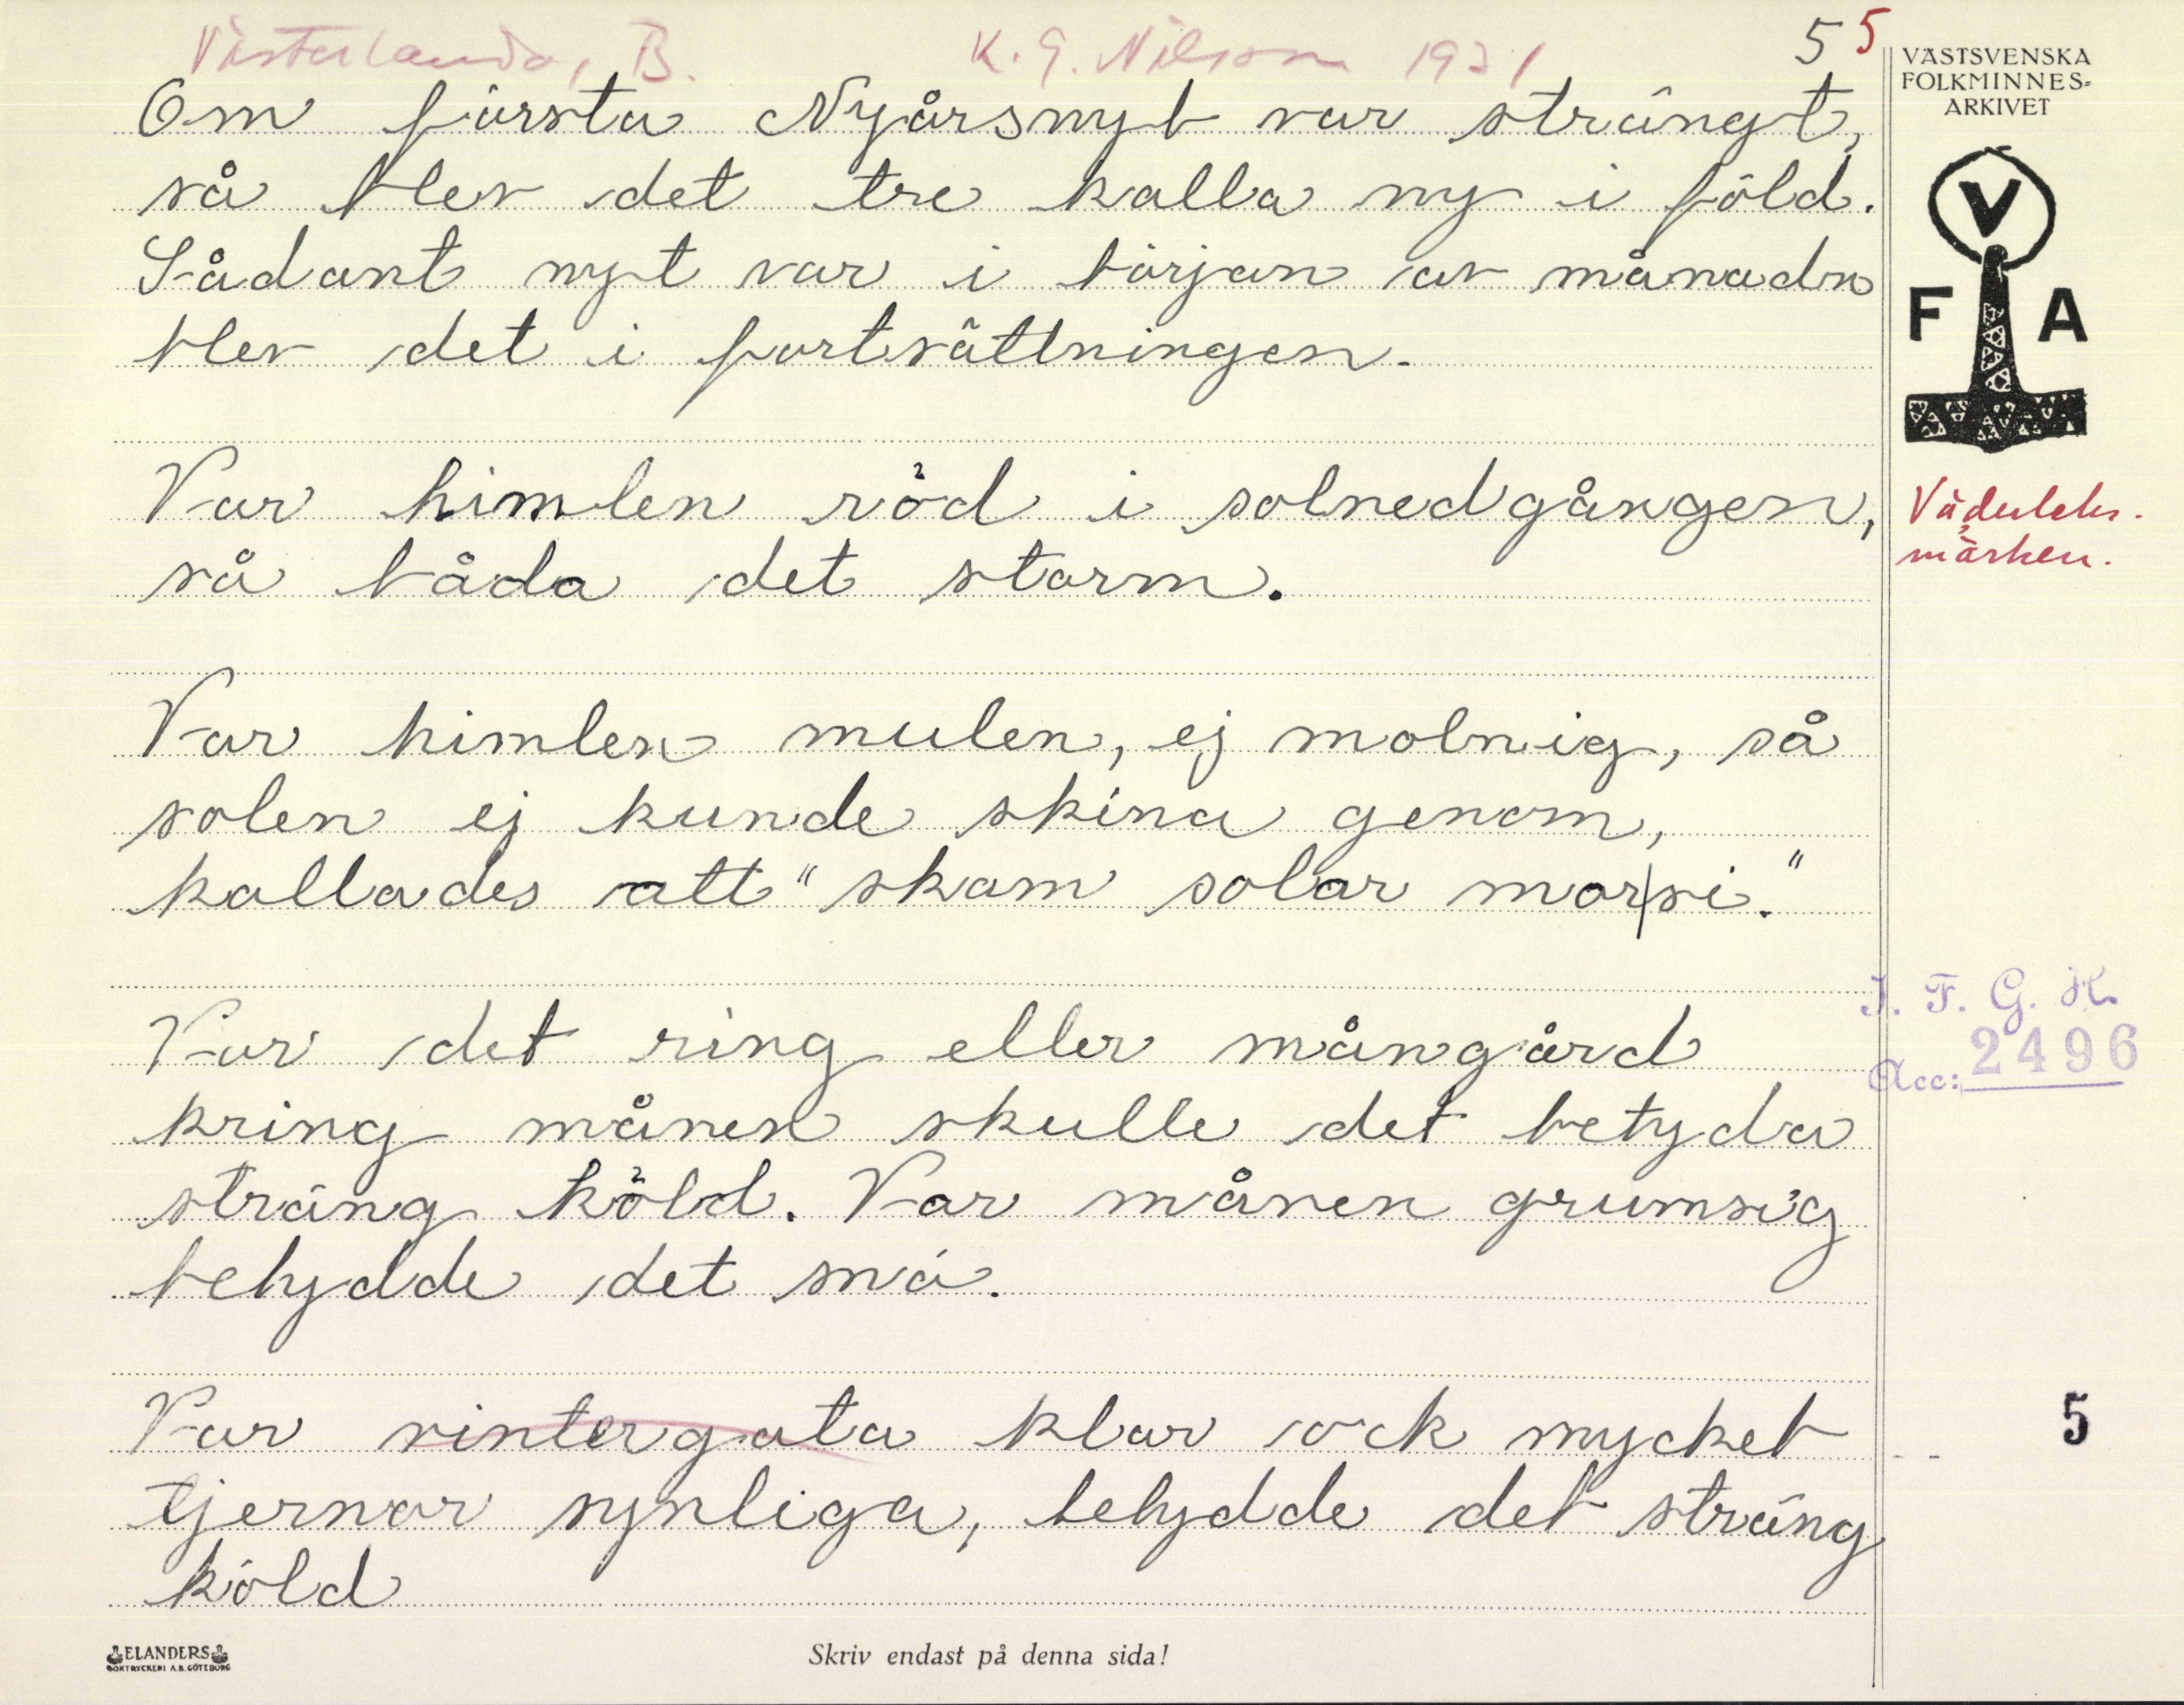 Västerlanda, B. K. G. Nilsson 1931 55
VÄSTSVENSKA
FOLKMINNES-
ARKIVET
V
F A
Om första Nyårsnyt var strängt,
så blev det tre kalla ny i följd.
Sådant nyt var i början av månadn
blev det i fortsättningen.
Var himlen röd i solnedgången,
så båda det storm.
Väderleks-
märken.
Var himlen mulen, ej molnig, så
solen ej kunde skina genom,
kallades att "skam solar mor|si."
I. F. G. H.
Acc: 2496
Var det ring eller mångård
kring månen skulle det betyda
sträng köld. Var månen grumsig
betydde det snö.
Var vintergata klar ock mycket
5
tjernor synliga, betydde det sträng
köld
ELANDERS
BOKTRYCKERI A.B. GÖTEBORG
Skriv endast på denna sida!